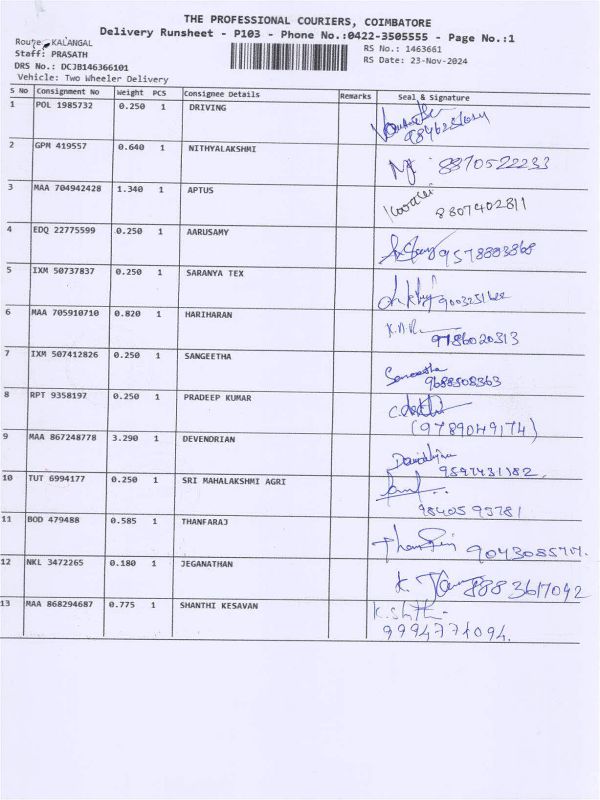 THE PROFESSIONAL COURIERS, COIMBATORE
Delivery Runsheet - P103 - Phone No.:0422-3505555 - Page No.:1
Route: KALANGAL
RS No.: 1463661
Staff: PRASATH
RS Date: 23-Nov-2024
DRS No.: DCJB146366101
Vehicle: Two Wheeler Delivery
S No Consignment No Weight PCS Consignee Details Remarks Seal & Signature
1 POL 1985732 0.250 1 DRIVING
2 GPM 419557 0.640 1 NITHYALAKSHMI
8870522233
3 MAA 704942428 1.340 1 APTUS
8807402811
4 EDQ 22775599 0.250 1 AARUSAMY
9578883868
5 IXM 50737837 0.250 1 SARANYA TEX
6 MAA 705910710 0.820 1 HARIHARAN
9786020313
7 IXM 507412826 0.250 1 SANGEETHA
9688508363
8 RPT 9358197 0.250 1 PRADEEP KUMAR
(9789049174)
9 MAA 867248778 3.290 1 DEVENDRIAN
9597431182
10 TUT 6994177 0.250 1 SRI MAHALAKSHMI AGRI
9840593781
11 BOD 479488 0.585 1 THANFARAJ
12 NKL 3472265 0.180 1 JEGANATHAN
8883617042
13 MAA 868294687 0.775 1 SHANTHI KESAVAN
9994771094.